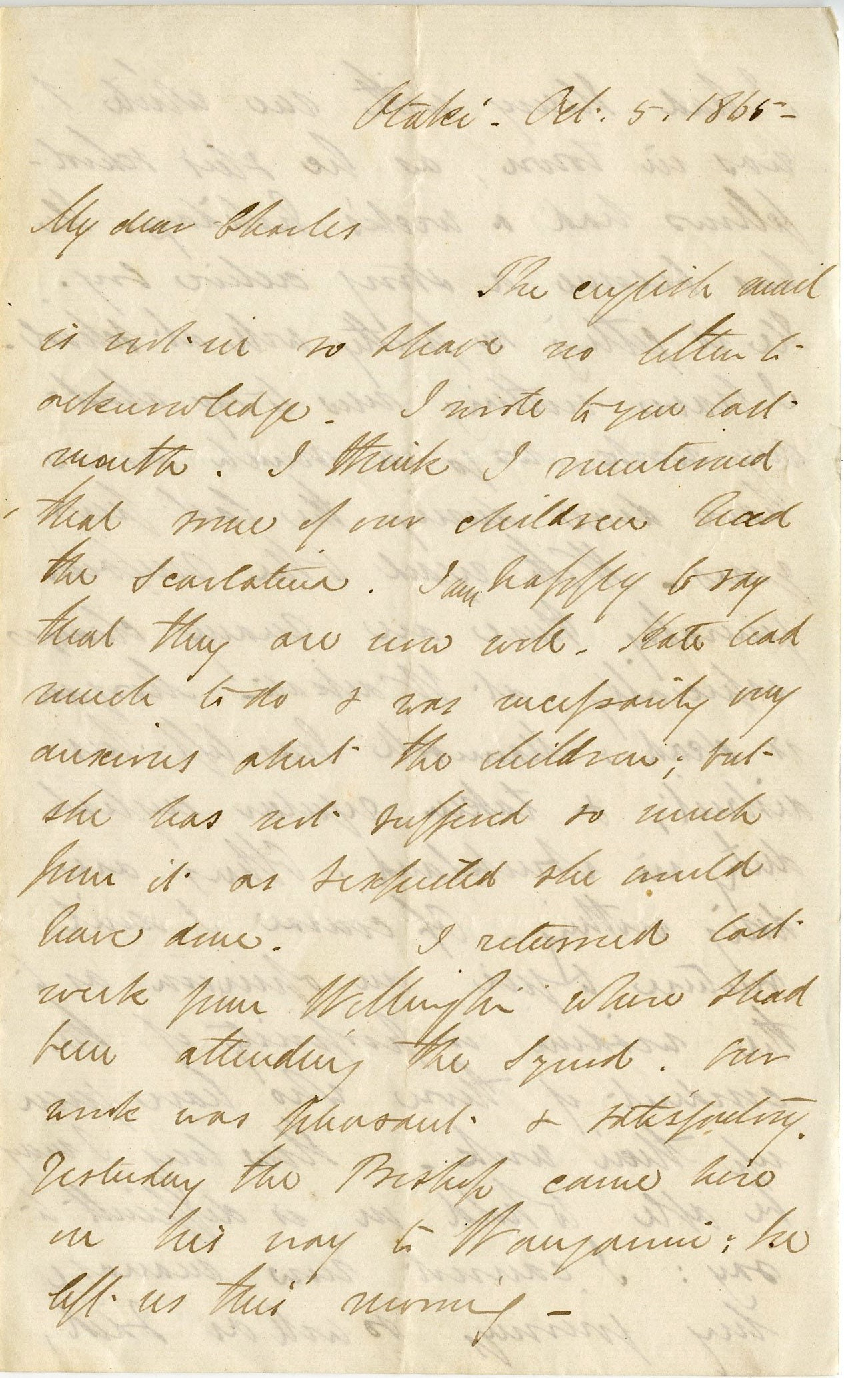 Otaki - Oct. 5. 1865 -
My dear Charles
The english mail
is not in so I have no letter to
acknowledge. I wrote to you last
month. I think I mentioned
that some of our children had
the Scarlatina. I am happy to say
that they are now well. Kate had
much to do & was necessarily very
anxious about the children; but
she has not suffered so much
from it as I expected she would
have done. I returned last
week from Wellington where I had
been attending the Synod. Our
work was pleasant & satisfactory.
Yesterday the Bishop came here
on his way to Wanganui; he
left us this morning -